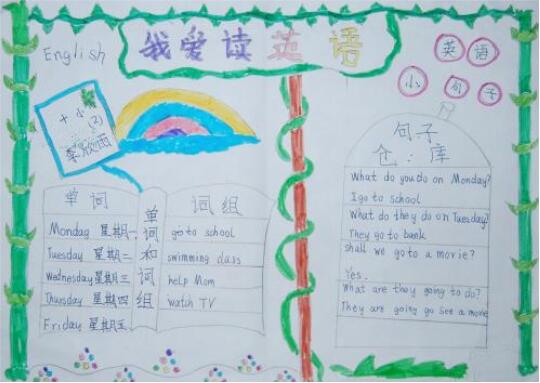 我爱读英语
English
英语
小句子
十小
(2)
李欣雨
句子
仓:库
What do you do on Monday?
I go to school
What do they do on Tuesday?
They go to bank
shall we go to a movie?
Yes.
What are they going to do?
They are going go see a movie
单词
Monday 星期一
Tuesday 星期二
Wednesday 星期三
Thursday 星期四
Friday 星期五
单词和词组
词组
go to school
swimming class
help Mom
watch TV